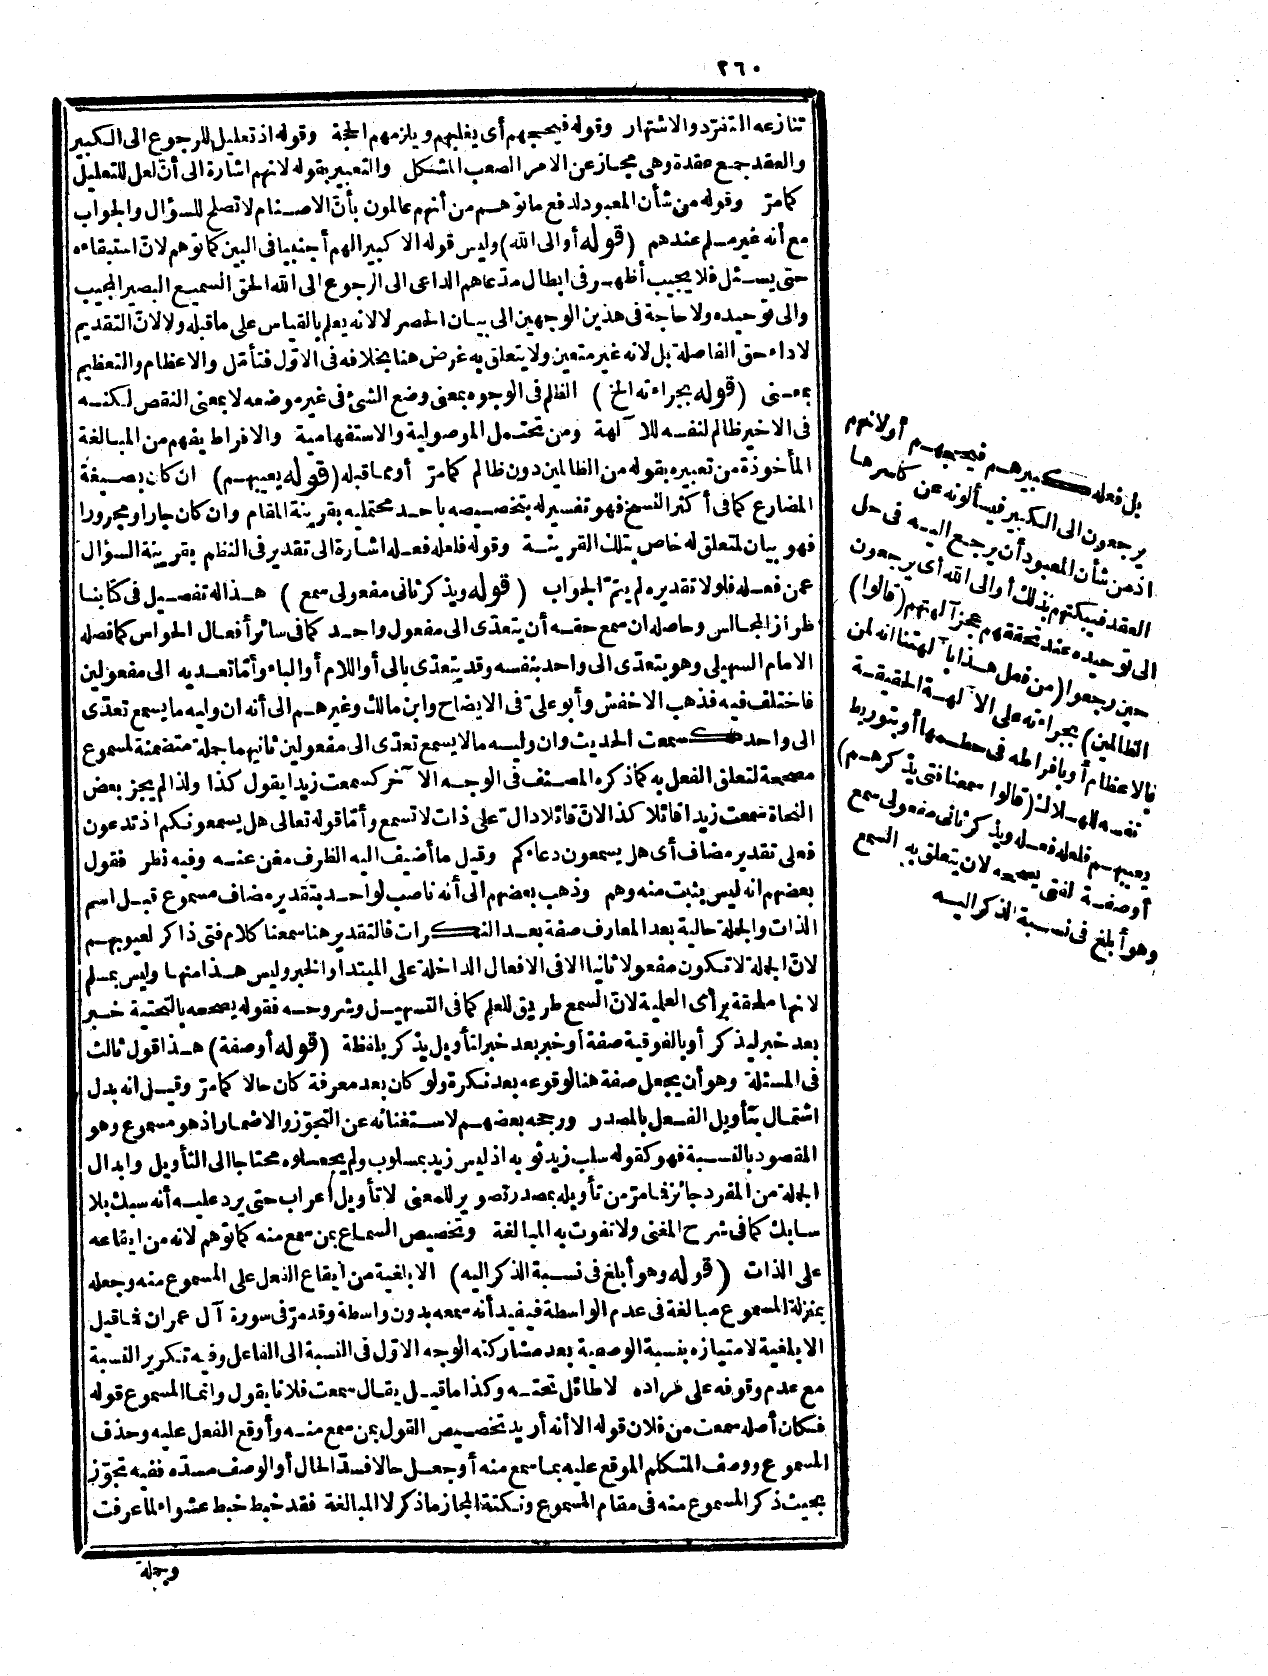 ٢٦٠
تنازعه التفرّد والاشتهار وقوله فيحجهم أى يغلبهم ويلزمهم الحجة وقوله اذ تعليل للرجوع الى الكبير
والعقد جمع عقدة وهى مجاز عن الامر الصعب المشكل والتعبير بقوله لانهم اشارة الى أنّ لعل للتعليل
كمامرّ وقوله من شأن المعبود لدفع ماتوهم من أنهم عالمون بأنّ الاصنام لا تصلح للسؤال والجواب
مع أنه غير مسلم عندهم (قوله أوالى الله) وليس قوله الا كبيرا لهم أجنبيا فى البين كماتوهم لانّ استبقاءه
حتى يسئل فلا يجيب أظهر فى ابطال مدّعاهم الداعى الى الرجوع الى الله الحق السميع البصير المجيب
والى توحيده ولا حاجة فى هذين الوجهين الى بيان الحصر لا لانه يعلم بالقياس على ماقبله ولا لانّ التقديم
لاداء حق الفاصلة بل لانه غير متعين ولا يتعلق به غرض هنا بخلافه فى الاوّل فتأمّل والاعظام والتعظيم
بمعنى (قوله بجراءته الخ) الظلم فى الوجوه بمعنى وضع الشئ فى غير موضعه لا بمعنى النقص لكنه
فى الاخير ظالم لنفسه للا ٓلهة ومن تحتمل الموصولية والاستفهامية والافراط يفهم من المبالغة
المأخوذة من تعبيره بقوله من الظالمين دون ظالم كمامرّ أومماقبله (قوله يعيبهم) ان كان بصيغة
المضارع كمافى أكثر النسخ فهو تفسير له بتخصيصه باحد محتمليه بقرينة المقام وان كان جارا ومجرورا
فهو بيان لمتعلق له خاص بتلك القرينة وقوله فلعله فعله اشارة الى تقدير فى النظم بقرينة السؤال
عن فعله فلولا تقديره لم يتمّ الجواب (قوله ويذكر ثانى مفعولى سمع) هذا له تفصيل فى كتابنا
طراز المجالس وحاصله ان سمع حقه أن يتعدّى الى مفعول واحد كمافى سائر أفعال الحواس كمافصله
الامام السهيلى وهو يتعدّى الى واحد بنفسه وقد يتعدّى بالى أو اللام أو الباء وأمّا تعديه الى مفعولين
فاختلف فيه فذهب الاخفش وأبو علىّ فى الايضاح وابن مالك وغيرهم الى أنه ان وليه مايسمع تعدّى
الى واحد كسمعت الحديث وان وليه مالا يسمع تعدّى الى مفعولين ثانيهما جملة متضمنة لمسموع
مصححة لتعلق الفعل به كماذكره المصنف فى الوجه الا ٓخر كسمعت زيدا يقول كذا ولذا لم يجز بعض
النحاة سمعت زيدا قائلا كذا لانّ قائلا دالّ على ذات لا تسمع وأمّا قوله تعالى هل يسمعونكم اذ تدعون
فعلى تقدير مضاف أى هل يسمعون دعاءكم وقيل ما أضيف اليه الظرف مغن عنه وفيه نظر فقول
بعضهم انه ليس بثبت منه وهم وذهب بعضهم الى أنه ناصب لواحد بتقدير مضاف مسموع قبل اسم
الذات والجملة حالية بعد المعارف صفة بعد النكرات فالتقدير هنا سمعنا كلام فتى ذاكر لعيوبهم
لانّ الجملة لا تكون مفعولا ثانيا الا فى الافعال الداخلة على المبتدا والخبر وليس هذا منها وليس بمسلم
لانها ملحقة برأى العلمية لانّ السمع طريق للعلم كمافى التسهيل وشروحه فقوله يصححه بالتحتية خبر
بعد خبر ليذكر أو بالفوقية صفة أو خبر بعد خبر لتأويل يذكر بلفظة (قوله أو صفة) هذا قول ثالث
فى المسئلة وهو أن يجعل صفة هنا لوقوعه بعد نكرة ولو كان بعد معرفة كان حالا كمامرّ وقيل انه بدل
اشتمال بتأويل الفعل بالمصدر ورجحه بعضهم لاستغنائه عن التجوّز والاضمار اذ هو مسموع وهو
المقصود بالنسبة فهو كقوله سلب زيد ثوبه اذ ليس زيد بمسلوب ولم يجعلوه محتاجا الى التأويل وابدال
الجملة من المفرد جائز فمامرّ من تأويله بمصدر تصوير للمعنى لا تأويل اعراب حتى يرد عليه أنه سبك بلا
سابك كمافى شرح المغنى ولا تفوت به المبالغة وتخصيص السماع بمن سمع منه كماتوهم لانه من ايقاعه
على الذات (قوله وهو أبلغ فى نسبة الذكر اليه) الابلغية من ايقاع الفعل على المسموع منه وجعله
بمنزلة المسموع مبالغة فى عدم الواسطة فيفيد أنه سمعه بدون واسطة وقد مرّ فى سورة آل عمران فما قيل
الابلغية لامتيازه بنسبة الوصفية بعد مشاركته الوجه الاوّل فى النسبة الى الفاعل وفيه تكرير النسبة
مع عدم وقوفه على مراده لا طائل تحته وكذا ماقيل يقال سمعت فلانا يقول وانما المسموع قوله
فكان أصله سمعت من فلان قوله الا أنه أريد تخصيص القول بمن سمع منه وأوقع الفعل عليه وحذف
المسموع ووصف المتكلم الموقع عليه بماسمع منه أو جعل حالا فسدّ الحال أو الوصف مسدّه ففيه تجوّز
بحيث ذكر المسموع منه فى مقام المسموع ونكتة المجاز ماذكر لا المبالغة فقد خبط خبط عشواء لما عرفت
وجملة
بل فعله كبيرهم فيحجهم أو لانهم
يرجعون الى الكبير فيسألونه عن كاسرها
اذ من شأن المعبود أن يرجع اليه فى حل
العقد فيبكتهم بذلك أو الى الله أى يرجعون
الى توحيده عند تحققهم عجز آلهتهم (قالوا)
حين رجعوا (من فعل هذا بآلهتنا انه لمن
الظالمين) بجراءته على الا ٓلهة الحقيقة
بالاعظام أو بافراطه فى حطمها أو بتوريط
نفسه للهلاك (قالوا سمعنا فتى يذكرهم)
يعيبهم فلعله فعله ويذكر ثانى مفعولى سمع
أو صفة لفتى يصححه لان يتعلق به السمع
وهو أبلغ فى نسبة الذكر اليه